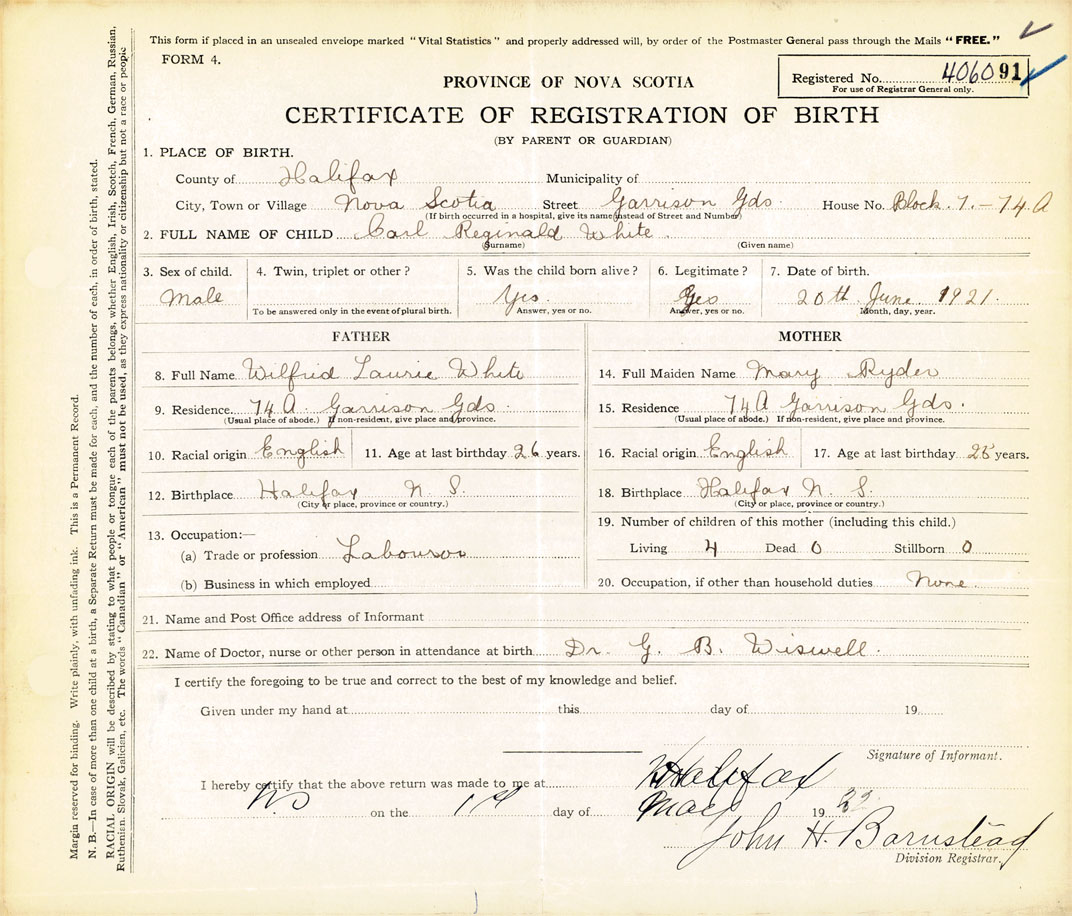 This form if placed in an unsealed envelope marked "Vital Statistics" and properly addressed will, by order of the Postmaster General pass through the Mails "FREE."
FORM 4.
Registered No. 406091
For use of Registrar General only.
PROVINCE OF NOVA SCOTIA
CERTIFICATE OF REGISTRATION OF BIRTH
(BY PARENT OR GUARDIAN)
1. PLACE OF BIRTH.
County of Halifax Municipality of
City, Town or Village Nova Scotia Street Garrison Gds. House No. Block. 7. - 74. A
(If birth occurred in a hospital, give its name instead of Street and Number)
2. FULL NAME OF CHILD Carl Reginald White
(Surname) (Given name)
3. Sex of child. 4. Twin, triplet or other? 5. Was the child born alive? 6. Legitimate? 7. Date of birth.
Male Yes. Yes 20th June 1921.
To be answered only in the event of plural birth. Answer, yes or no. Answer, yes or no. Month, day, year.
FATHER
8. Full Name Wilfrid Laurie White
9. Residence 74 A. Garrison Gds
(Usual place of abode.) If non-resident, give place and province.
10. Racial origin English 11. Age at last birthday 26 years.
12. Birthplace Halifax N. S.
(City or place, province or country.)
13. Occupation:—
(a) Trade or profession Labourer
(b) Business in which employed
MOTHER
14. Full Maiden Name Mary Ryder
15. Residence 74 A Garrison Gds.
(Usual place of abode.) If non-resident, give place and province.
16. Racial origin English 17. Age at last birthday 25 years.
18. Birthplace Halifax N. S.
(City or place, province or country.)
19. Number of children of this mother (including this child.)
Living 4 Dead 0 Stillborn 0
20. Occupation, if other than household duties None.
21. Name and Post Office address of Informant
22. Name of Doctor, nurse or other person in attendance at birth Dr. G. B. Wiswell.
I certify the foregoing to be true and correct to the best of my knowledge and belief.
Given under my hand at this day of 19
Signature of Informant.
I hereby certify that the above return was made to me at Halifax
NS on the 1st day of May 19
John H. Barnstead
Division Registrar.
Margin reserved for binding. Write plainly, with unfading ink. This is a Permanent Record.
N. B.—In case of more than one child at a birth, a Separate Return must be made for each, and the number of each, in order of birth, stated.
RACIAL ORIGIN will be described by stating to what people or tongue each of the parents belongs, whether English, Irish, Scotch, French, German, Russian,
Ruthenian, Slovak, Galician, etc. The words "Canadian" or "American" must not be used, as they express nationality or citizenship but not a race or people